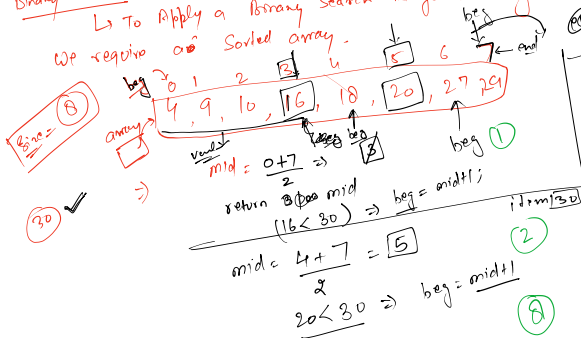 Binary Search
↳ To Apply a Binary Search
we require a Sorted array.
beg
beg → 0 1 2 3 4 5 6 7 ← end
Size = 8
array
4, 9, 10, 16, 18, 20, 27, 29
beg
beg
1
mid = 0+7 / 2 ⇒ 3
30 ✓
⇒
return mid
(16 < 30) ⇒ beg = mid+1;
item 30
mid = 4+7 / 2 = 5
2
20 < 30 ⇒ beg = mid+1
8